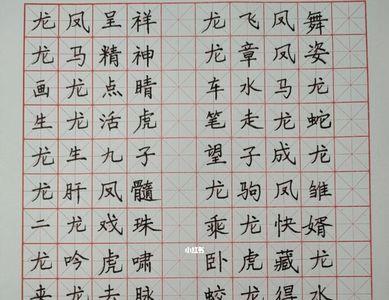 龙凤呈祥 龙飞凤舞
龙马精神 龙章凤姿
画龙点睛 车水马龙
生龙活虎 笔走龙蛇
龙生九子 望子成龙
龙肝凤髓 龙驹凤雏
二龙戏珠 乘龙快婿
小红书
龙吟虎啸 卧虎藏龙
来龙去脉 蛟龙得水